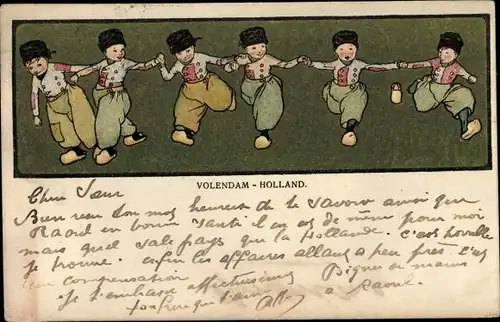 VOLENDAM - HOLLAND.
Chère Sœur
Bien reçu ton mot heureux de te savoir ainsi que
Raoul en bonne santé il en est de même pour moi
mais quel sale pays que la Hollande. c'est
je trouve. enfin les affaires allant a peu près. C'est
une compensation
Je t'embrasse affectueusement
ton frère qui t'aime
a Raoul.